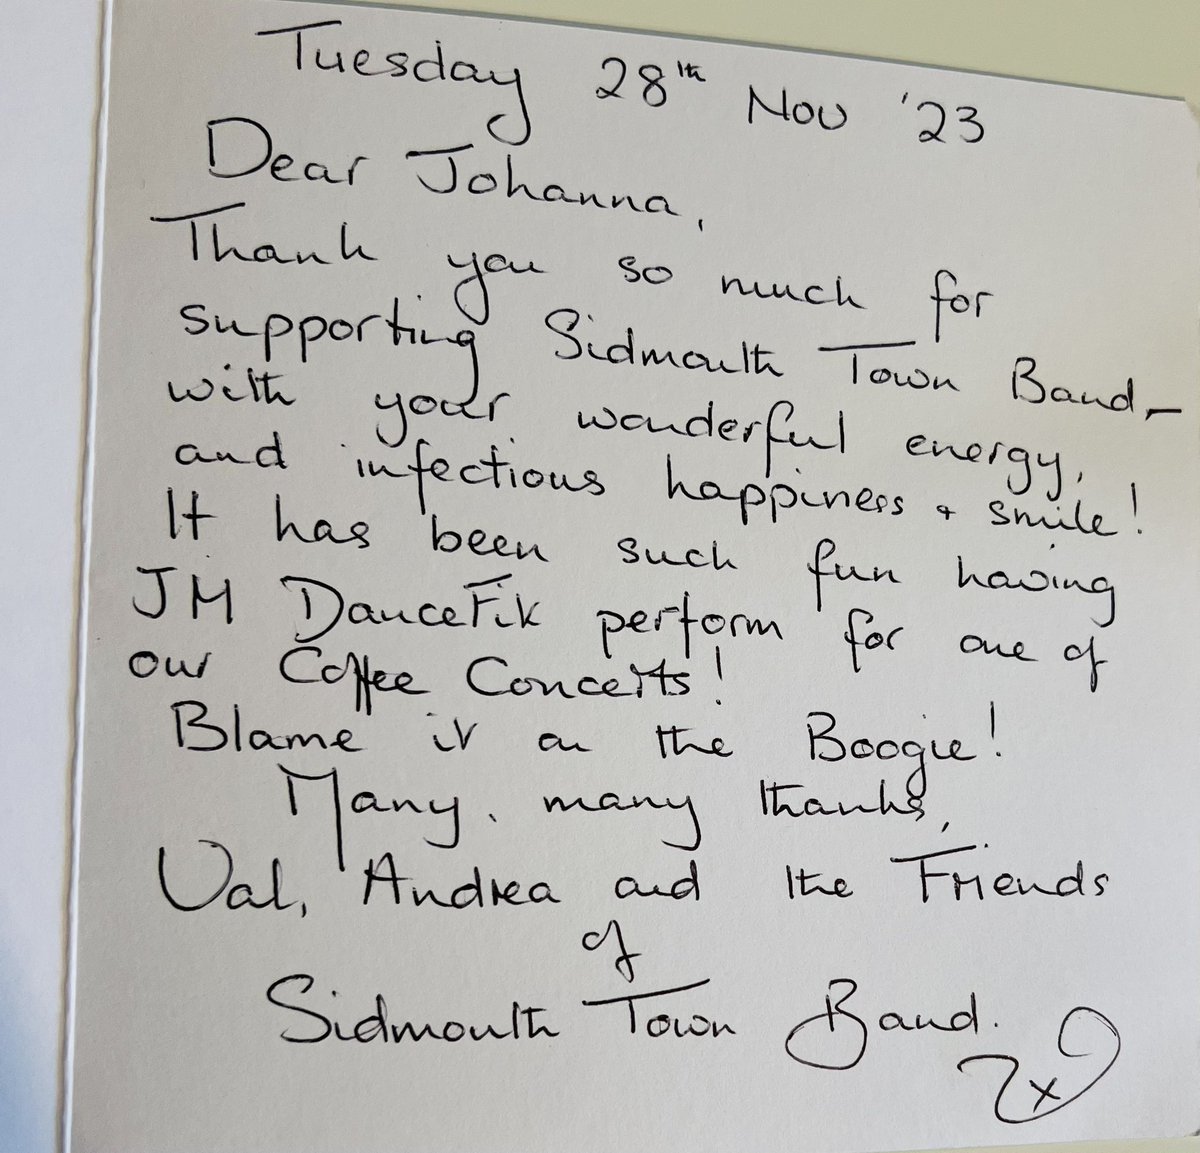 Tuesday 28th Nov '23
Dear Johanna,
Thank you so much for
supporting Sidmouth Town Band, -
with your wonderful energy,
and infectious happiness + smile!
It has been such fun having
JM DanceFit perform for one of
our Coffee Concerts!
Blame it on the Boogie!
Many, many thanks,
Val, Andrea and the Friends
of
Sidmouth Town Band.
x